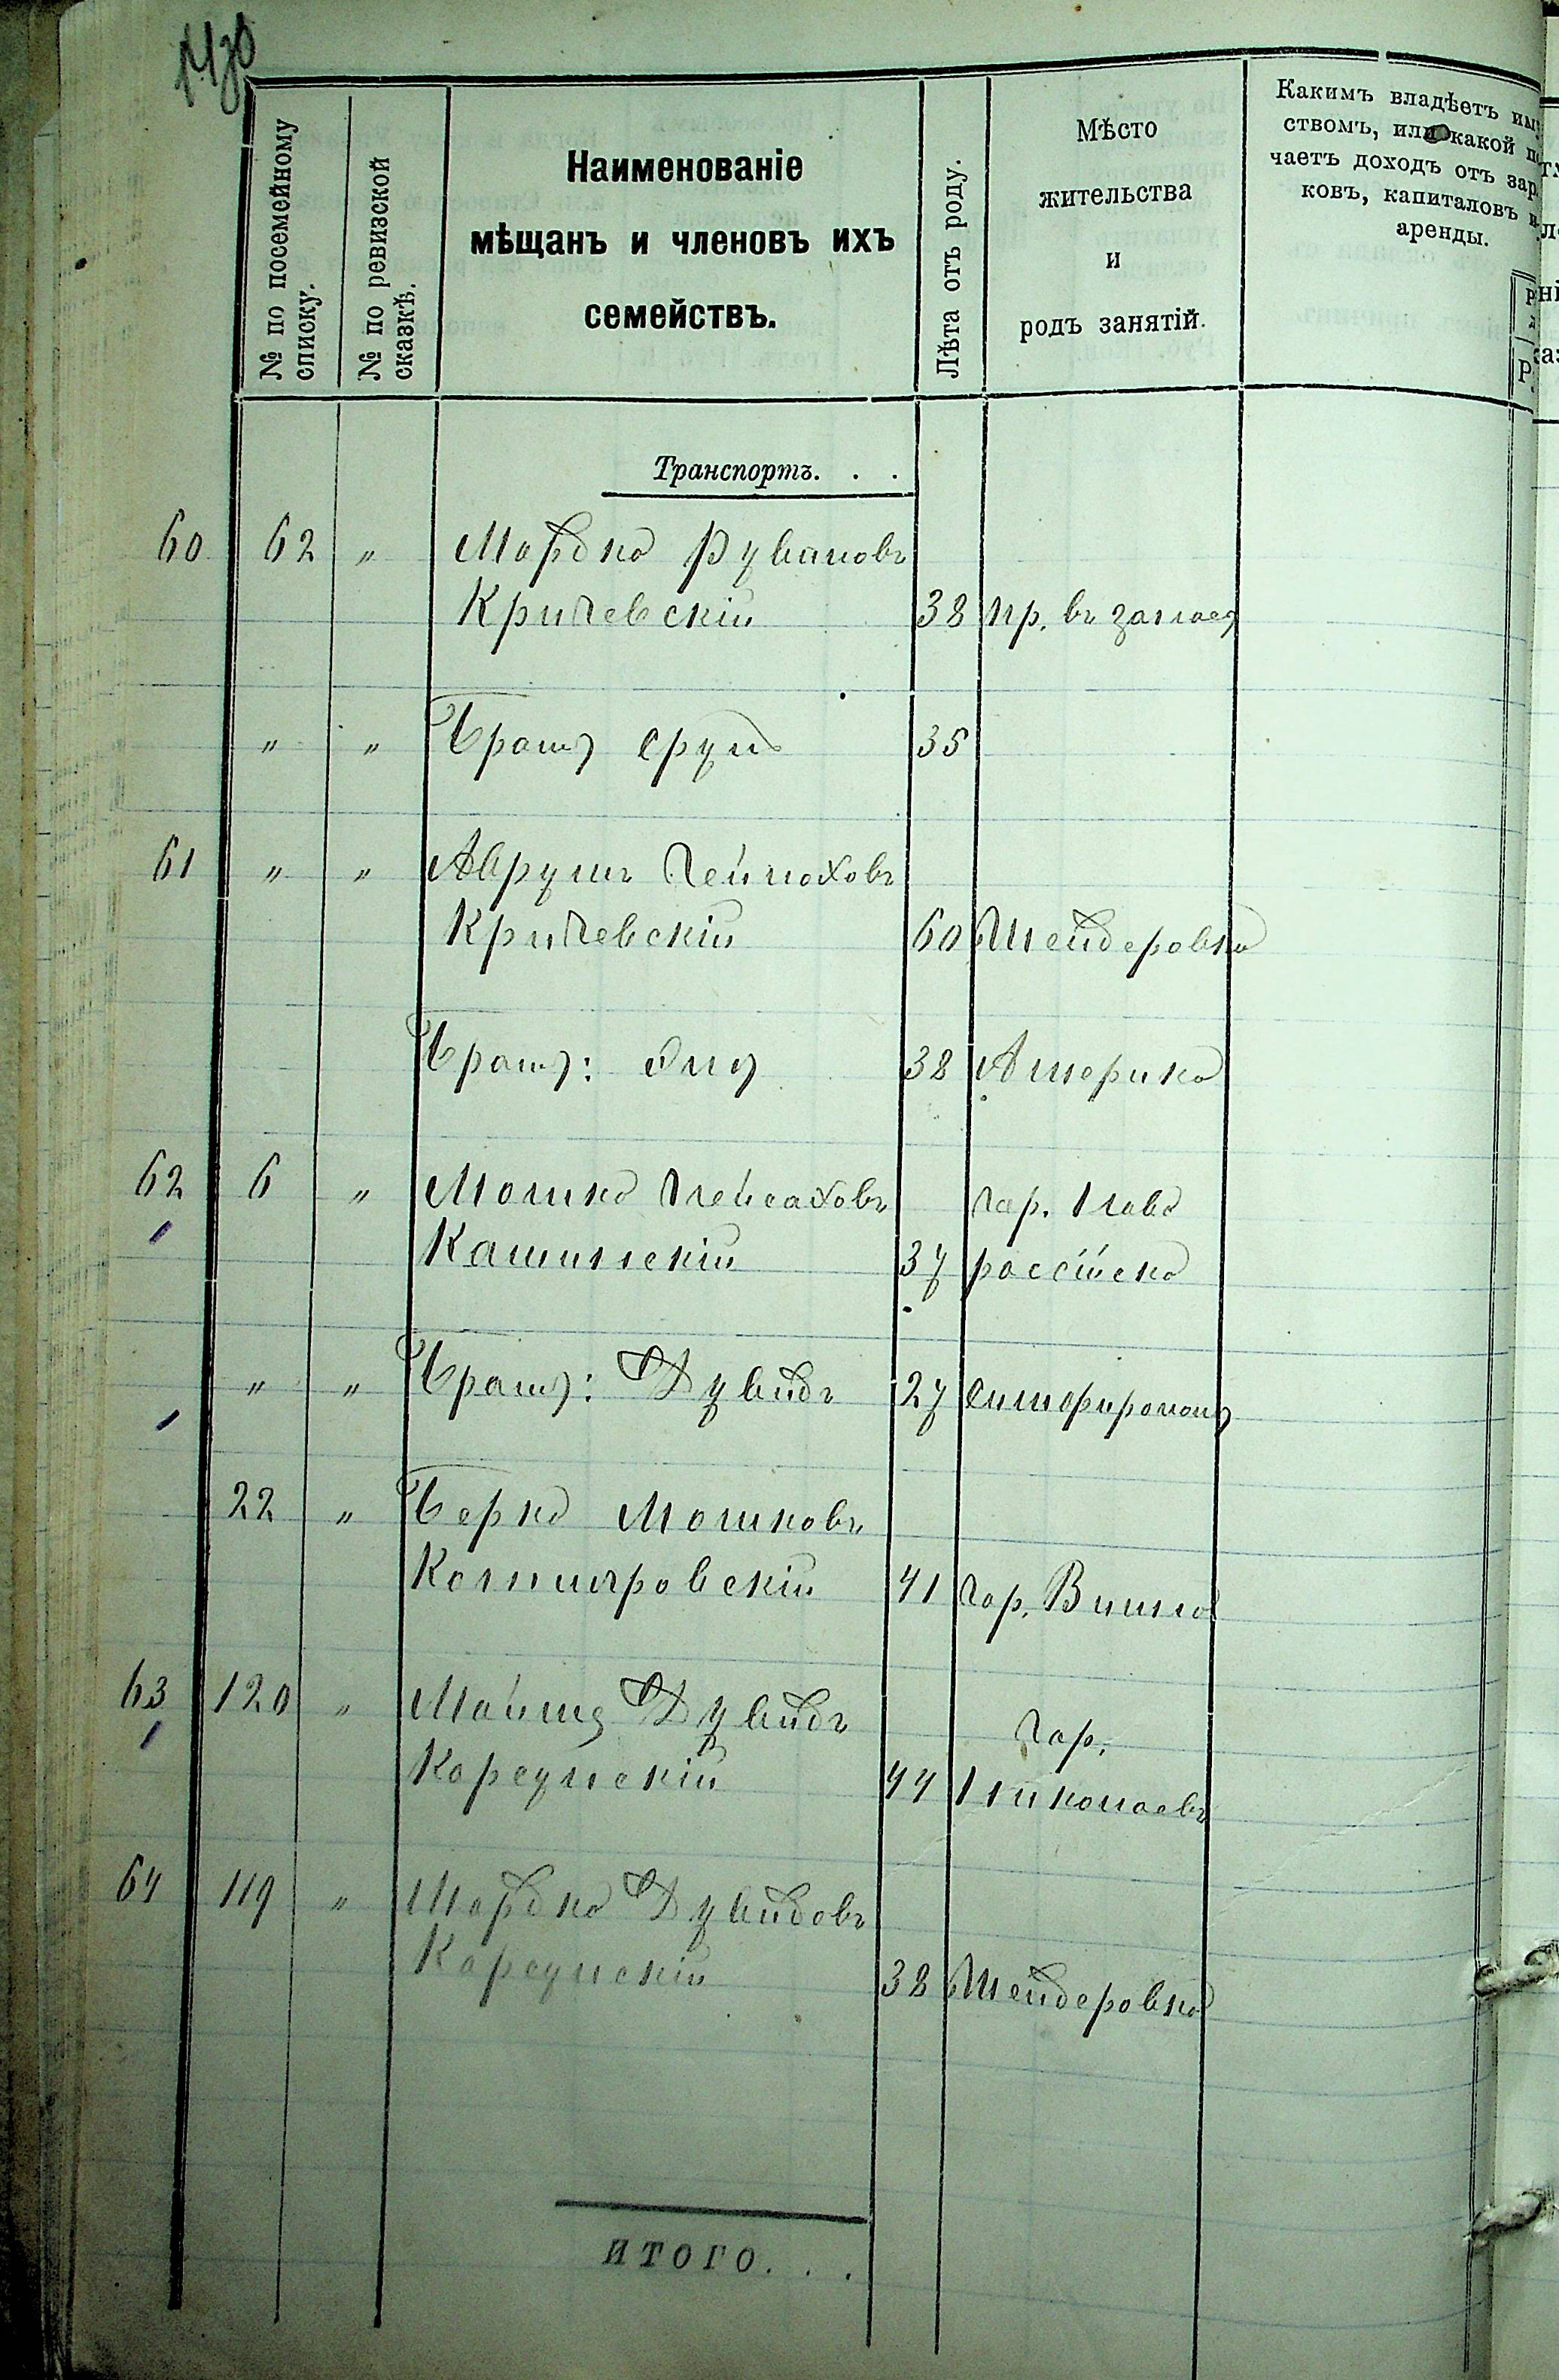 № по посемейному списку.
№ по ревизской сказкѣ.
Наименованіе
мѣщанъ и членовъ ихъ
семействъ.
Лѣта отъ роду.
Мѣсто
жительства
и
родъ занятій.
Какимъ владѣетъ им
ствомъ, или какой п
чаетъ доходъ отъ зар
ковъ, капиталовъ и
аренды.
Р.
Транспортъ. . .
60 62 " Мордко Рувиновъ
Кричевскій 38 пр. въ
" " Братъ Сруль 35
61 " " Аврумъ Гейноховъ
Кричевскій 60 Шендеровка
Братъ: 38 Америка
62 6 " Мошко Пейсаховъ гор. Ново
Кашинскій 37 россійскъ
" " Братъ: Дувидъ 27 Симферополь
22 " Берко Мошковъ
41 гор. Вильно
63 120 " Мойше Дувидъ гор.
Корсунскій 44 Николаевъ
64 119 " Мордко Дувидовъ
Корсунскій 38 Шендеровка
ИТОГО. . .